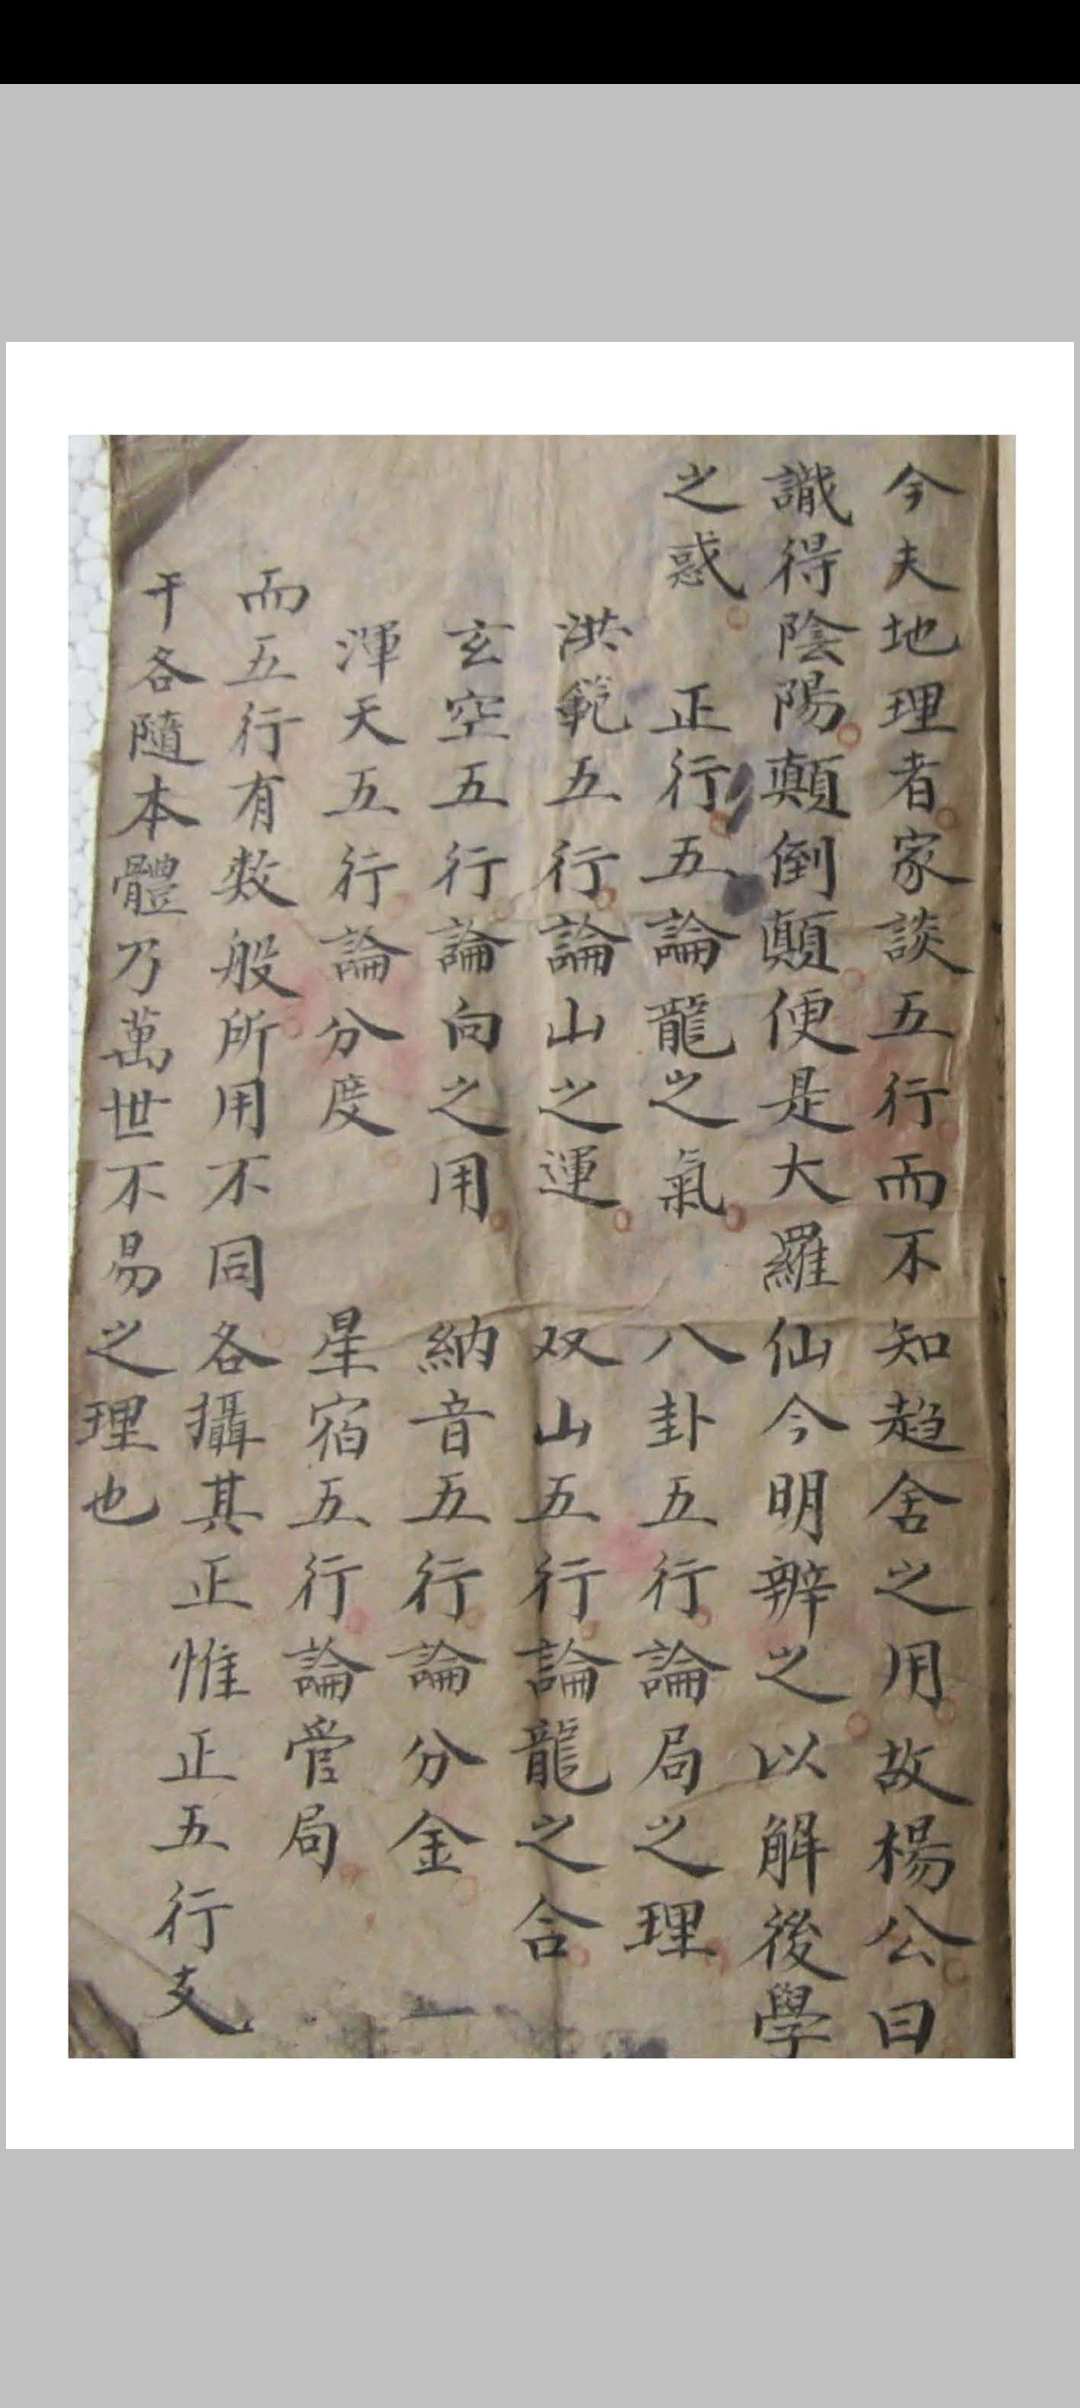 今夫地理者家談五行而不知趋舍之用故楊公曰
識得陰陽顛倒顛便是大羅仙今明辨之以解後學
之惑　正行五論龍之氣　八卦五行論局之理
洪範五行論山之運　双山五行論龍之合
玄空五行論向之用　納音五行論分金
渾天五行論分度　星宿五行論管局
而五行有数般所用不同各攝其正惟正五行支
干各隨本體乃萬世不易之理也